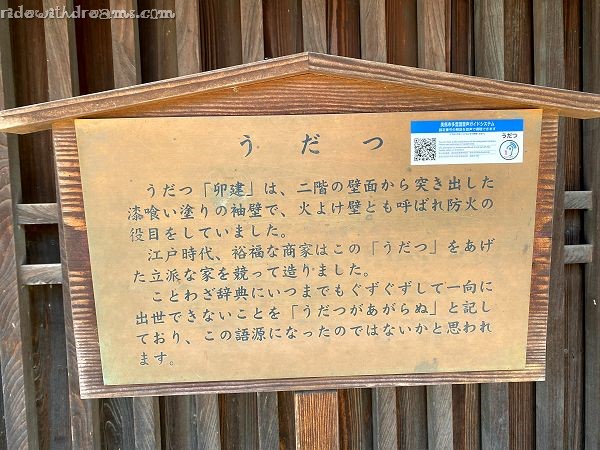 ridewithdreams.com
うだつ
美馬市多言語音声ガイドシステム
うだつ
うだつ「卯建」は、二階の壁面から突き出した
漆喰い塗りの袖壁で、火よけ壁とも呼ばれ防火の
役目をしていました。
江戸時代、裕福な商家はこの「うだつ」をあげ
た立派な家を競って造りました。
ことわざ辞典にいつまでもぐずぐずして一向に
出世できないことを「うだつがあがらぬ」と記し
ており、この語源になったのではないかと思われ
ます。